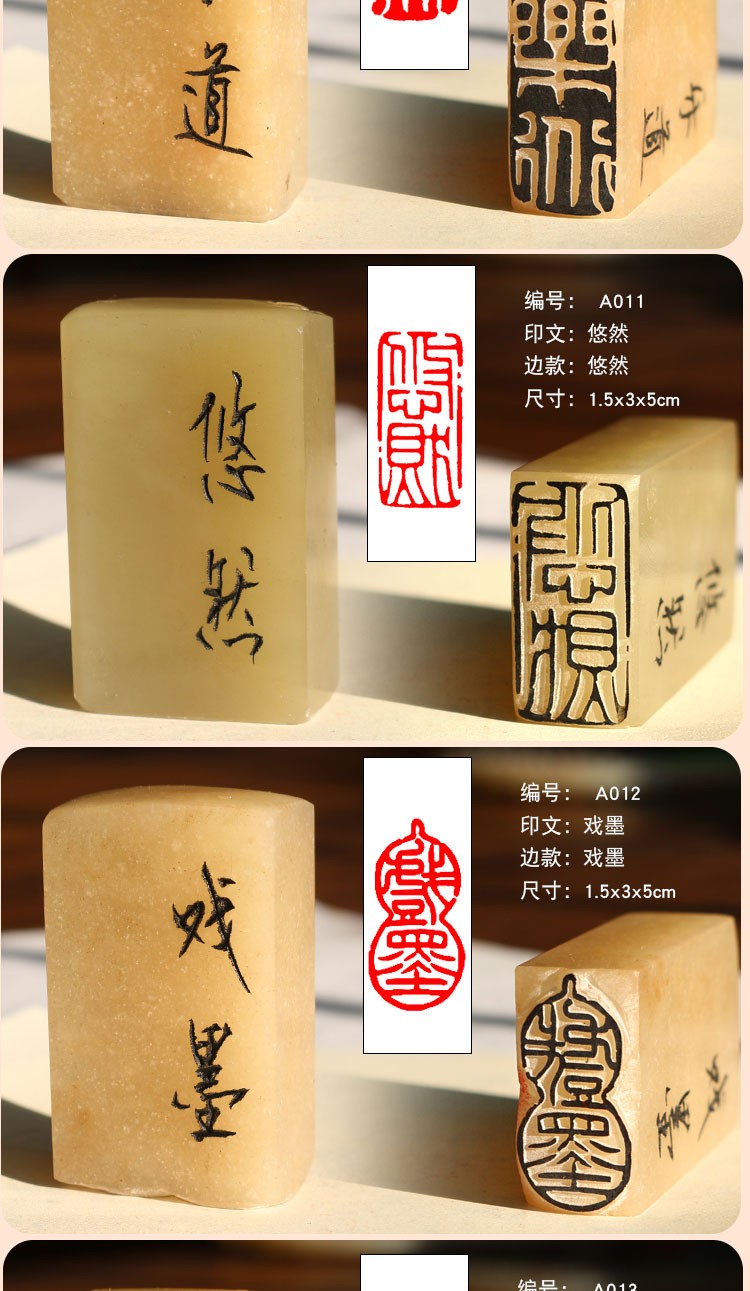 道
道
编号： A011
印文：悠然
边款：悠然
尺寸：1.5x3x5cm
悠然
悠然
悠然
悠然
编号： A012
印文：戏墨
边款：戏墨
尺寸：1.5x3x5cm
戏墨
戲墨
戲墨
戏墨
编号： A013